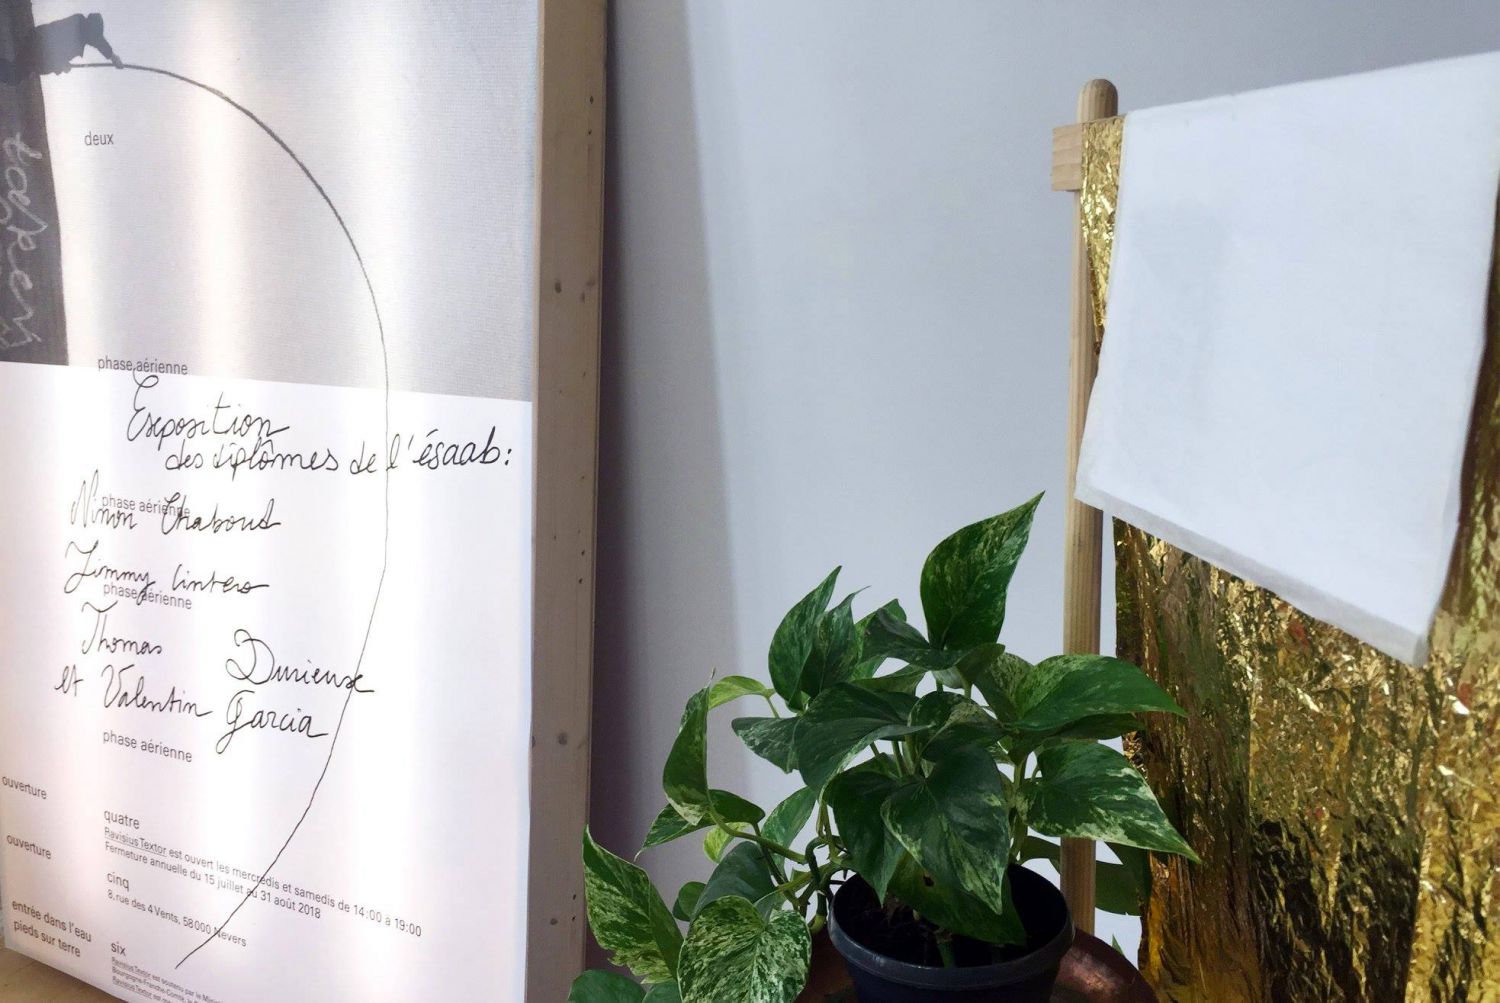 deux
phase aérienne
Exposition
des diplômes de l'ésaab:
phase aérienne
Ninon Chaboud
Jimmy Cintero
phase aérienne
Thomas Durieux
et Valentin Garcia
phase aérienne
ouverture
quatre
Ravisius Textor est ouvert les mercredis et samedis de 14:00 à 19:00
Fermeture annuelle du 15 juillet au 31 août 2018
ouverture
cinq
8, rue des 4 Vents, 58000 Nevers
entrée dans l'eau
pieds sur terre
six
Ravisius Textor est soutenu par le
Bourgogne-Franche-Comté,
Ravisius Textor est